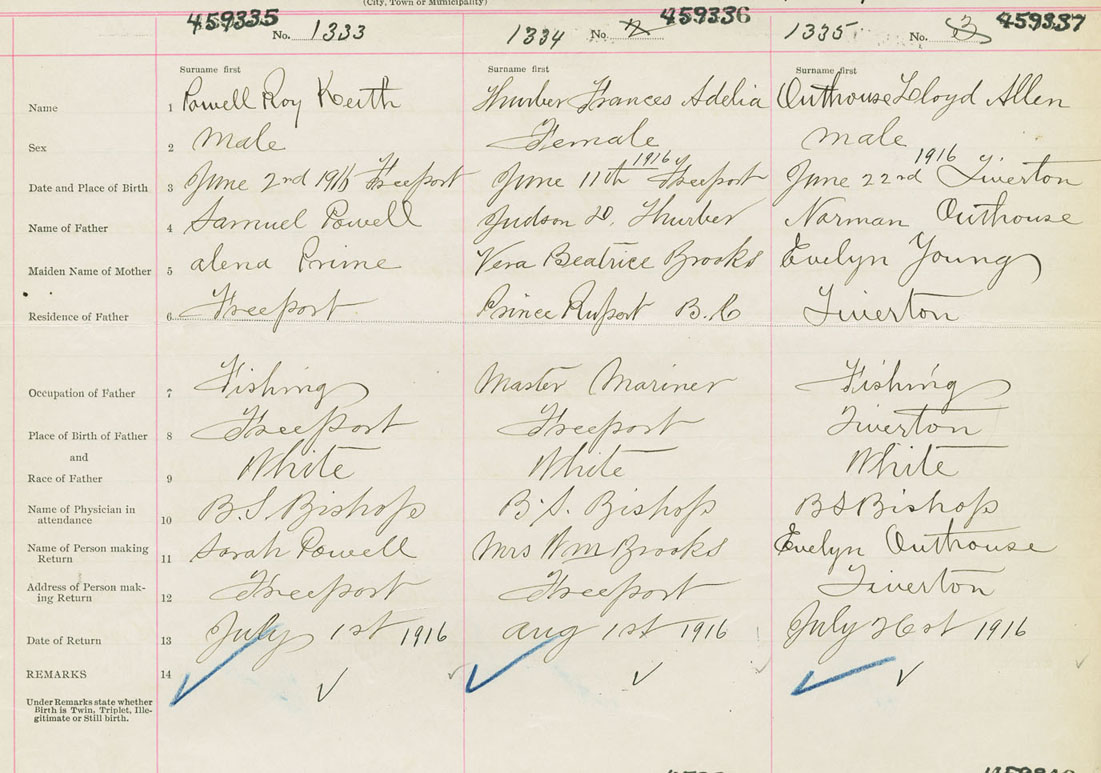 (City, Town or Municipality)
459335 459336 459337
No. 1333 1334 No. 2 1335 No. 3
Surname first Surname first Surname first
Name 1 Powell Roy Keith Thurber Frances Adelia Outhouse Lloyd Allen
Sex 2 Male Female male
1916 1916
Date and Place of Birth 3 June 2nd 1916 Freeport June 11th Freeport June 22nd Tiverton
Name of Father 4 Samuel Powell Judson D. Thurber Norman Outhouse
Maiden Name of Mother 5 alena Prime Vera Beatrice Brooks Evelyn Young
Residence of Father 6 Freeport Prince Rupert B.C Tiverton
Occupation of Father 7 Fishing Master Mariner Fishing
Place of Birth of Father 8 Freeport Freeport Tiverton
and
Race of Father 9 White White White
Name of Physician in
attendance 10 B.S Bishop B.S. Bishop BS Bishop
Name of Person making
Return 11 Sarah Powell Mrs Wm Brooks Evelyn Outhouse
Address of Person mak-
ing Return 12 Freeport Freeport Tiverton
Date of Return 13 July 1st 1916 aug 1st 1916 July 1916
REMARKS 14
Under Remarks state whether
Birth is Twin, Triplet, Ille-
gitimate or Still birth.